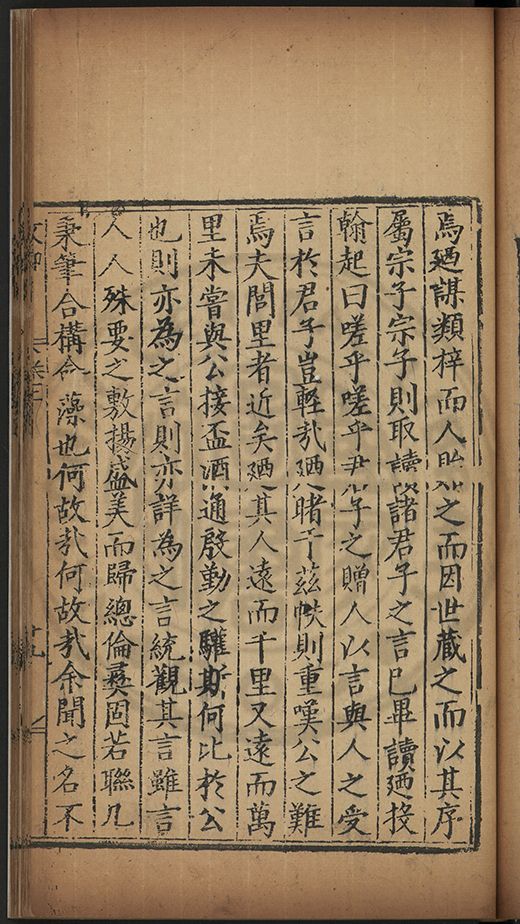 焉廼謀類梓而人貽之而因世藏之而以其序
屬宗子宗子則取讀諸君子之言已畢讀廼投
翰起曰嗟乎嗟乎君子之贈人以言與人之受
言於君子豈輕㢤廼睹于茲帙則重嘆公之難
焉夫閭里者近矣廼其人遠而千里又遠而萬
里未嘗與公接盃酒通殷勤之驩斯何比於公
也則亦為之言則亦詳為之言統觀其言雖言
人人殊要之敷揚盛美而歸總倫彞固若聯几
秉筆合構合藻也何故㢤何故㢤余聞之名不